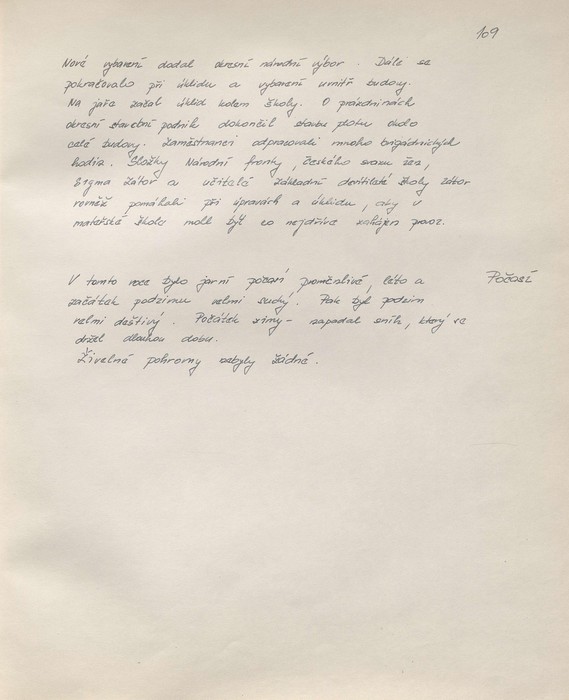 109
Nové vybavení dodal okresní národní výbor. Dále se
pokračovalo při úklidu a vybavení uvnitř budovy.
Na jaře začal úklid kolem školy. O prázdninách
okresní stavební podnik dokončil stavbu plotu okolo
celé budovy. Zaměstnanci odpracovali mnoho brigádnických
hodin. Složky Národní fronty, Českého svazu žen,
Sigma Zátor a učitelé Základní devítileté školy Zátor
rovněž pomáhali při úpravách a úklidu, aby v
mateřské škole mohl být co nejdříve zahájen provoz.
V tomto roce bylo jarní počasí proměnlivé, léto a
Počasí
začátek podzimu velmi suchý. Pak byl podzim
velmi deštivý. Počátek zimy - napadal sníh, který se
držel dlouhou dobu.
Živelné pohromy nebyly žádné.